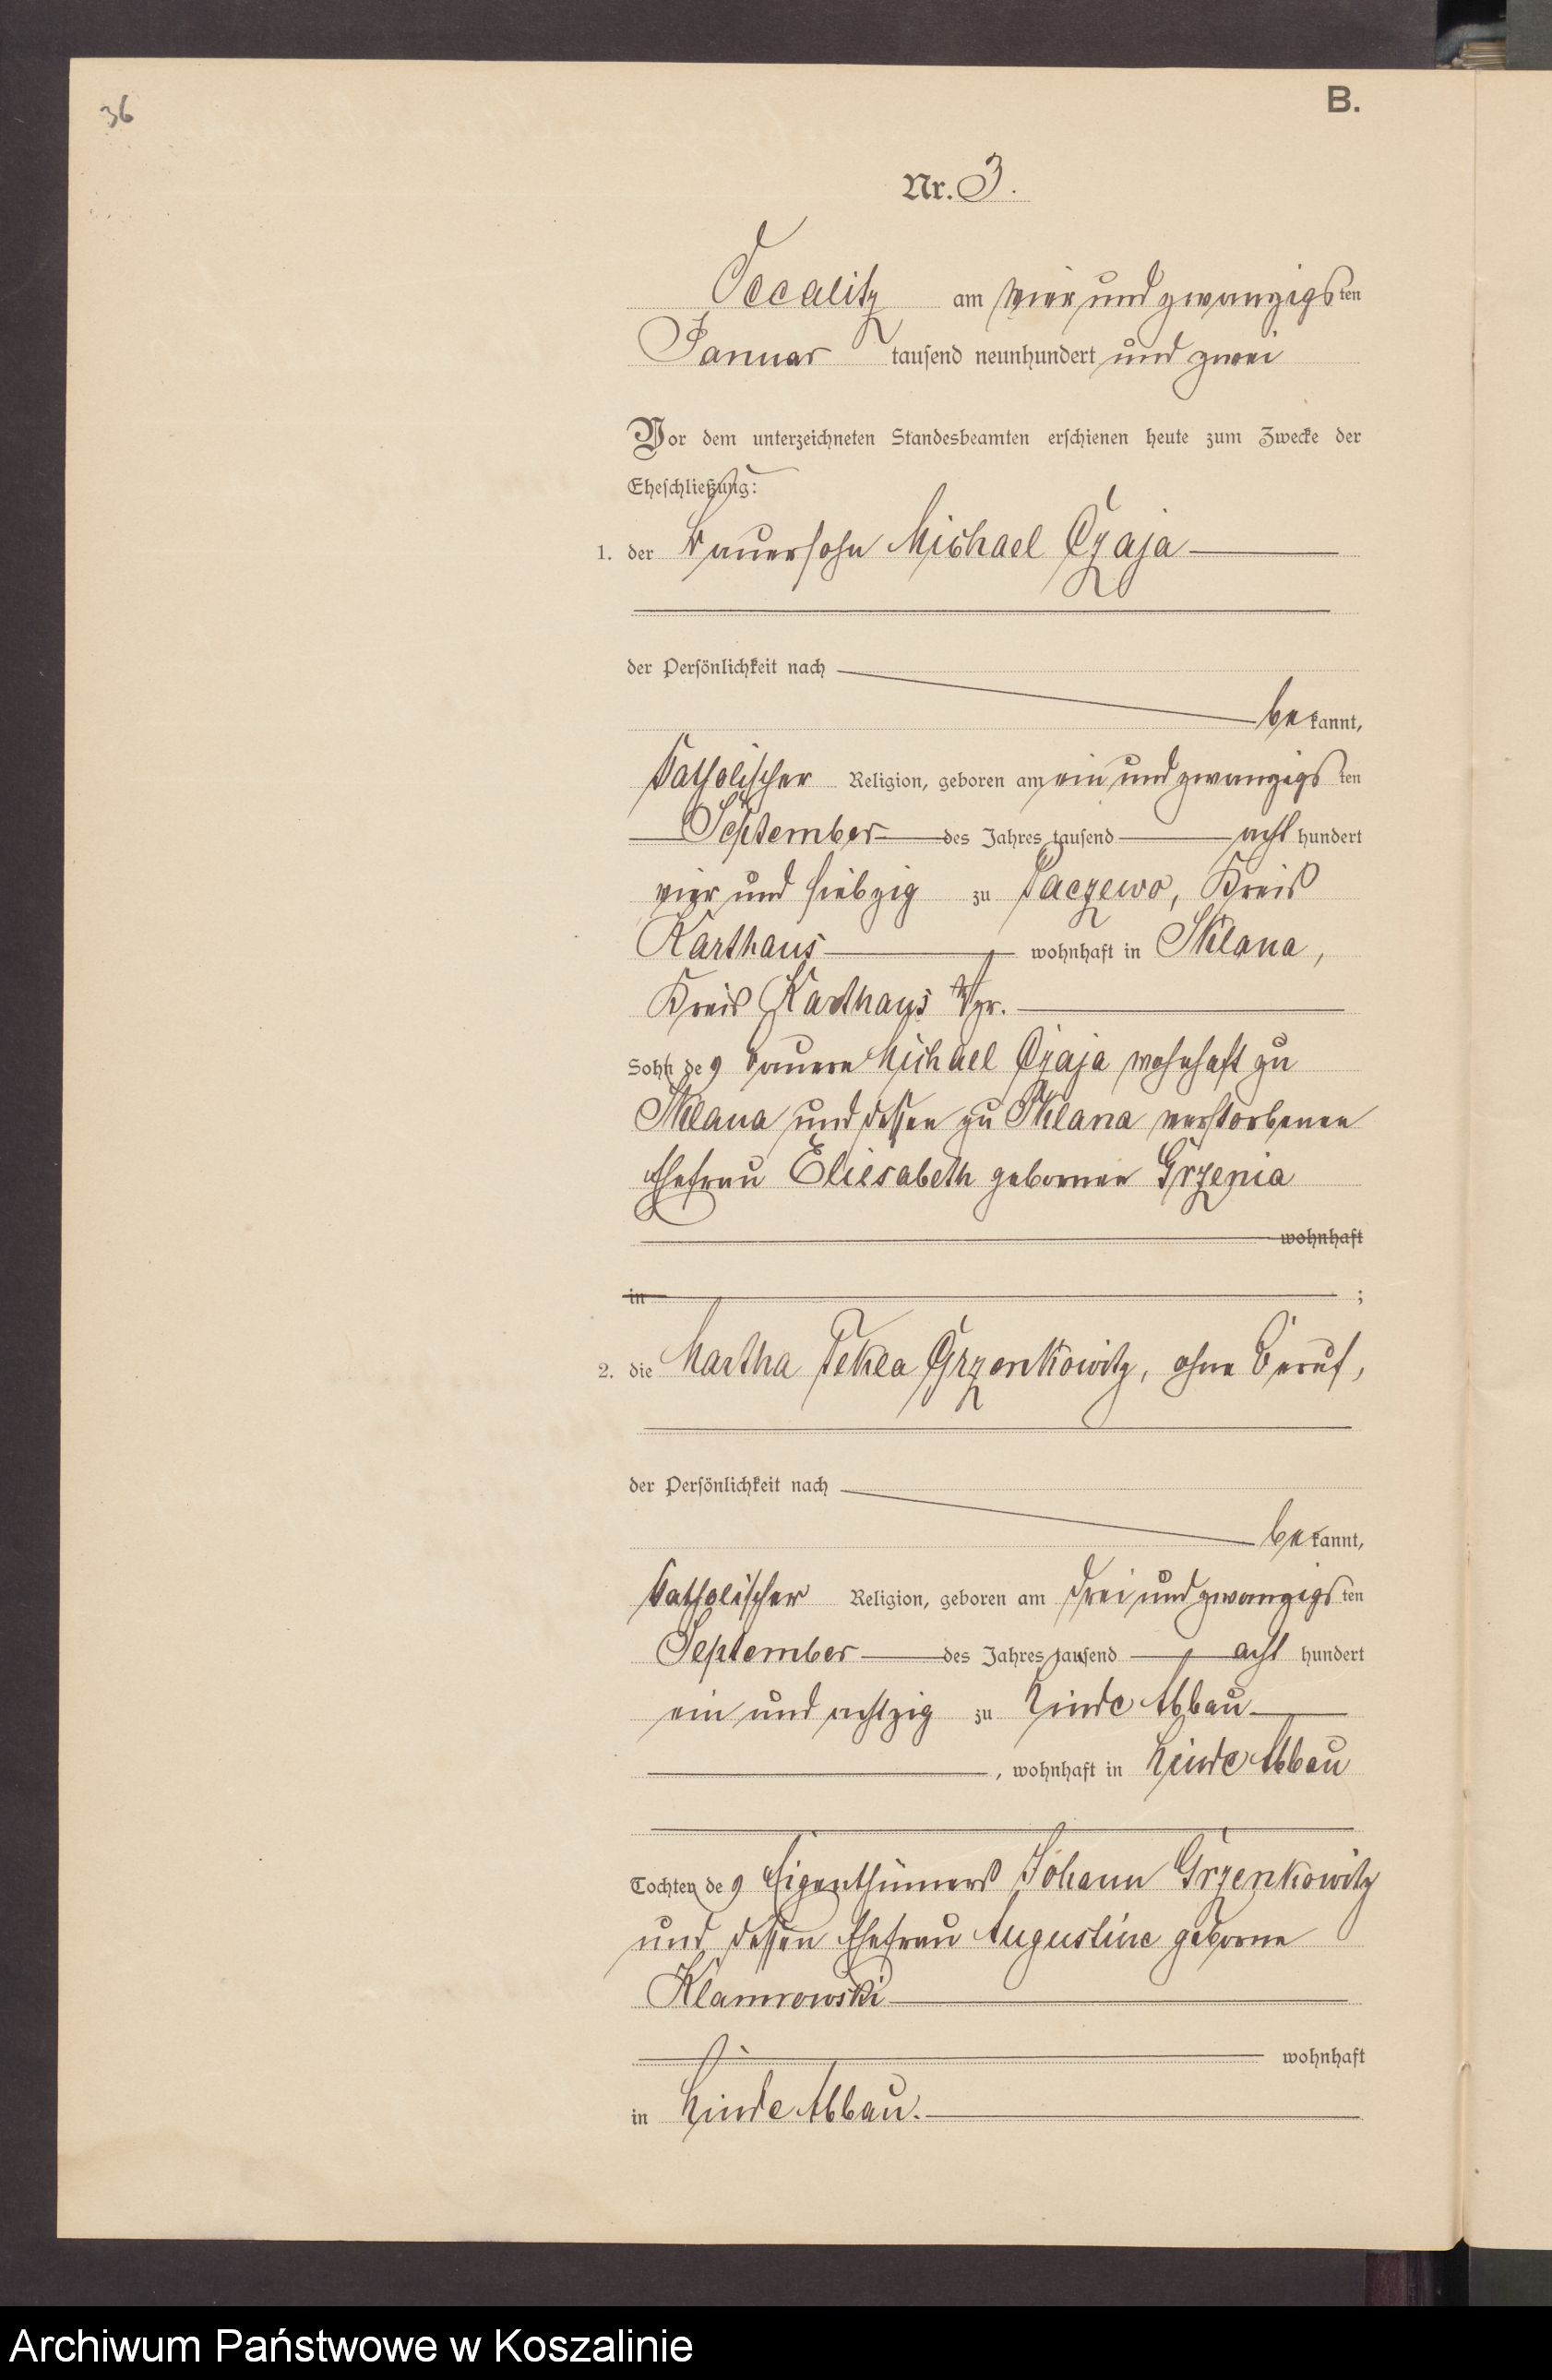 36
B.
Nr. 3.
Occalitz am vier und zwanzigsten
Januar tausend neunhundert und zwei
Vor dem unterzeichneten Standesbeamten erschienen heute zum Zwecke der
Eheschließung:
1. der Bauersohn Michael Czaja
der Persönlichkeit nach
bekannt,
katholischer Religion, geboren am ein und zwanzigsten
September des Jahres tausend acht hundert
vier und siebzig zu Paczewo, Kreis
Karthaus wohnhaft in Sklana,
Kreis Karthaus Wpr.
Sohn des Bauern Michael Czaja wohnhaft zu
Sklana und dessen zu Sklana verstorbenen
Ehefrau Eliesabeth gebornen Grzenia
wohnhaft
in ;
2. die Martha Tekla Grzenkowitz, ohne Beruf,
der Persönlichkeit nach
bekannt,
katholischer Religion, geboren am drei und zwanzigsten
September des Jahres tausend acht hundert
ein und achtzig zu Linde Abbau
, wohnhaft in Linde Abbau
Tochter des Eigenthümers Johann Grzenkowitz
und dessen Ehefrau Augustine geborne
Klamrowski
wohnhaft
in Linde Abbau.
Archiwum Państwowe w Koszalinie